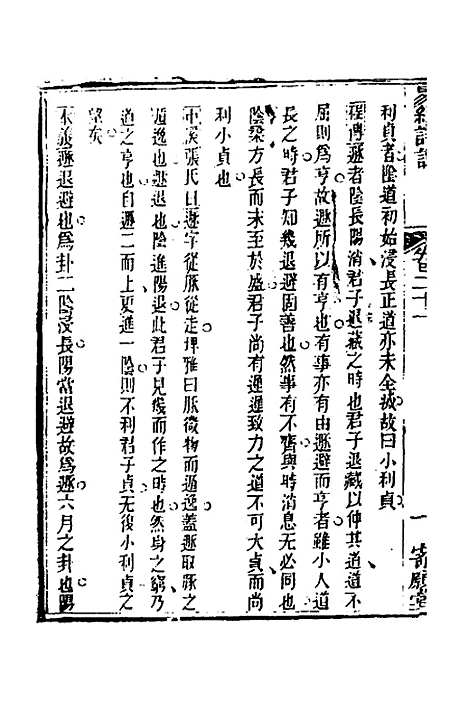 易經詳說
卷三十一
一 寄願堂
利貞者陰道初始浸長正道亦未全滅故曰小利貞
程傳遯者陰長陽消君子退藏之時也君子退藏以伸其道道不
屈則爲亨故遯所以有亨也在事亦有由遯避而亨者雖小人道
長之時君子知幾退避固善也然事有不齊與時消息无必同也
陰柔方長而未至於盛君子尚有遲遲致力之道不可大貞而尚
利小貞也
中溪張氏曰遯字從豚從走埤雅曰豚微物而遁逸蓋遯取豚之
遁逸也遯退也陰進陽退此君子見幾而作之時也然身之窮乃
道之亨也自遯二而上更進一陰則不利君子貞无復小利貞之
望矣
本義遯退避也爲卦二陰浸長陽當退避故爲遯六月之卦也陽